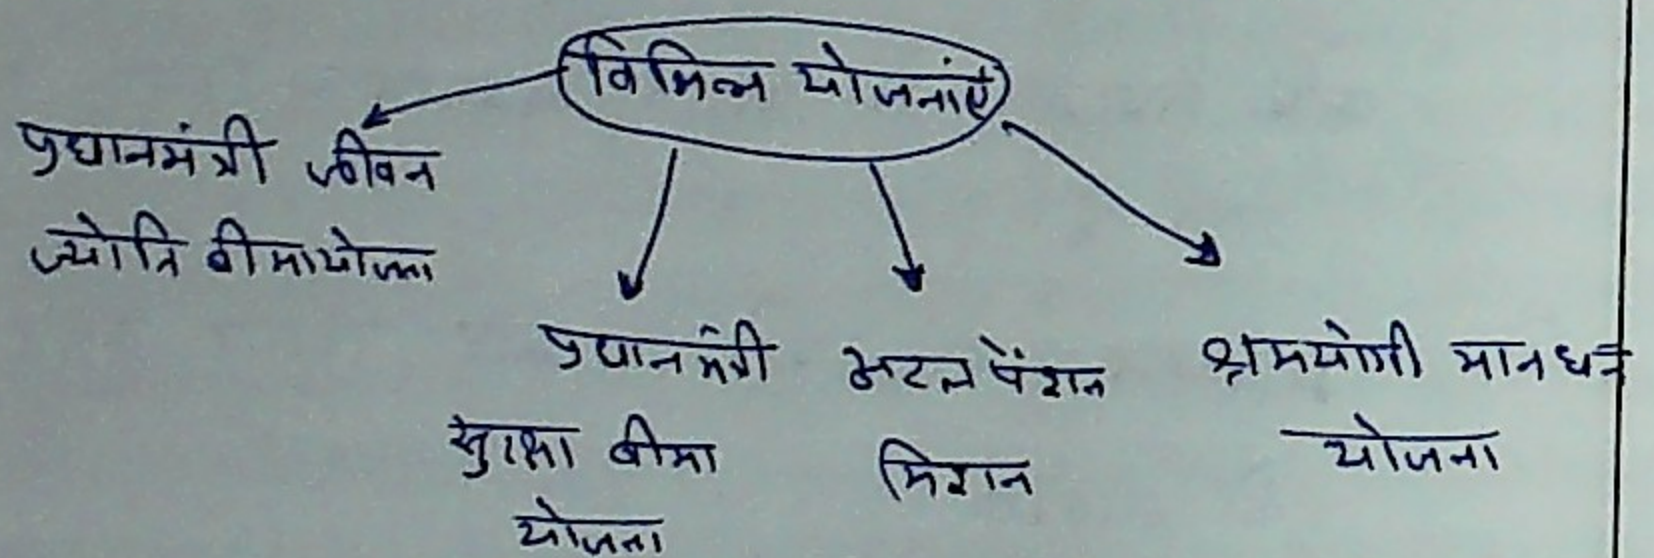 विभिन्न योजनाएं
प्रधानमंत्री जीवन
ज्योति बीमा योजना
प्रधानमंत्री
सुरक्षा बीमा
योजना
अटल पेंशन
मिशन
श्रमयोगी मानधन
योजना